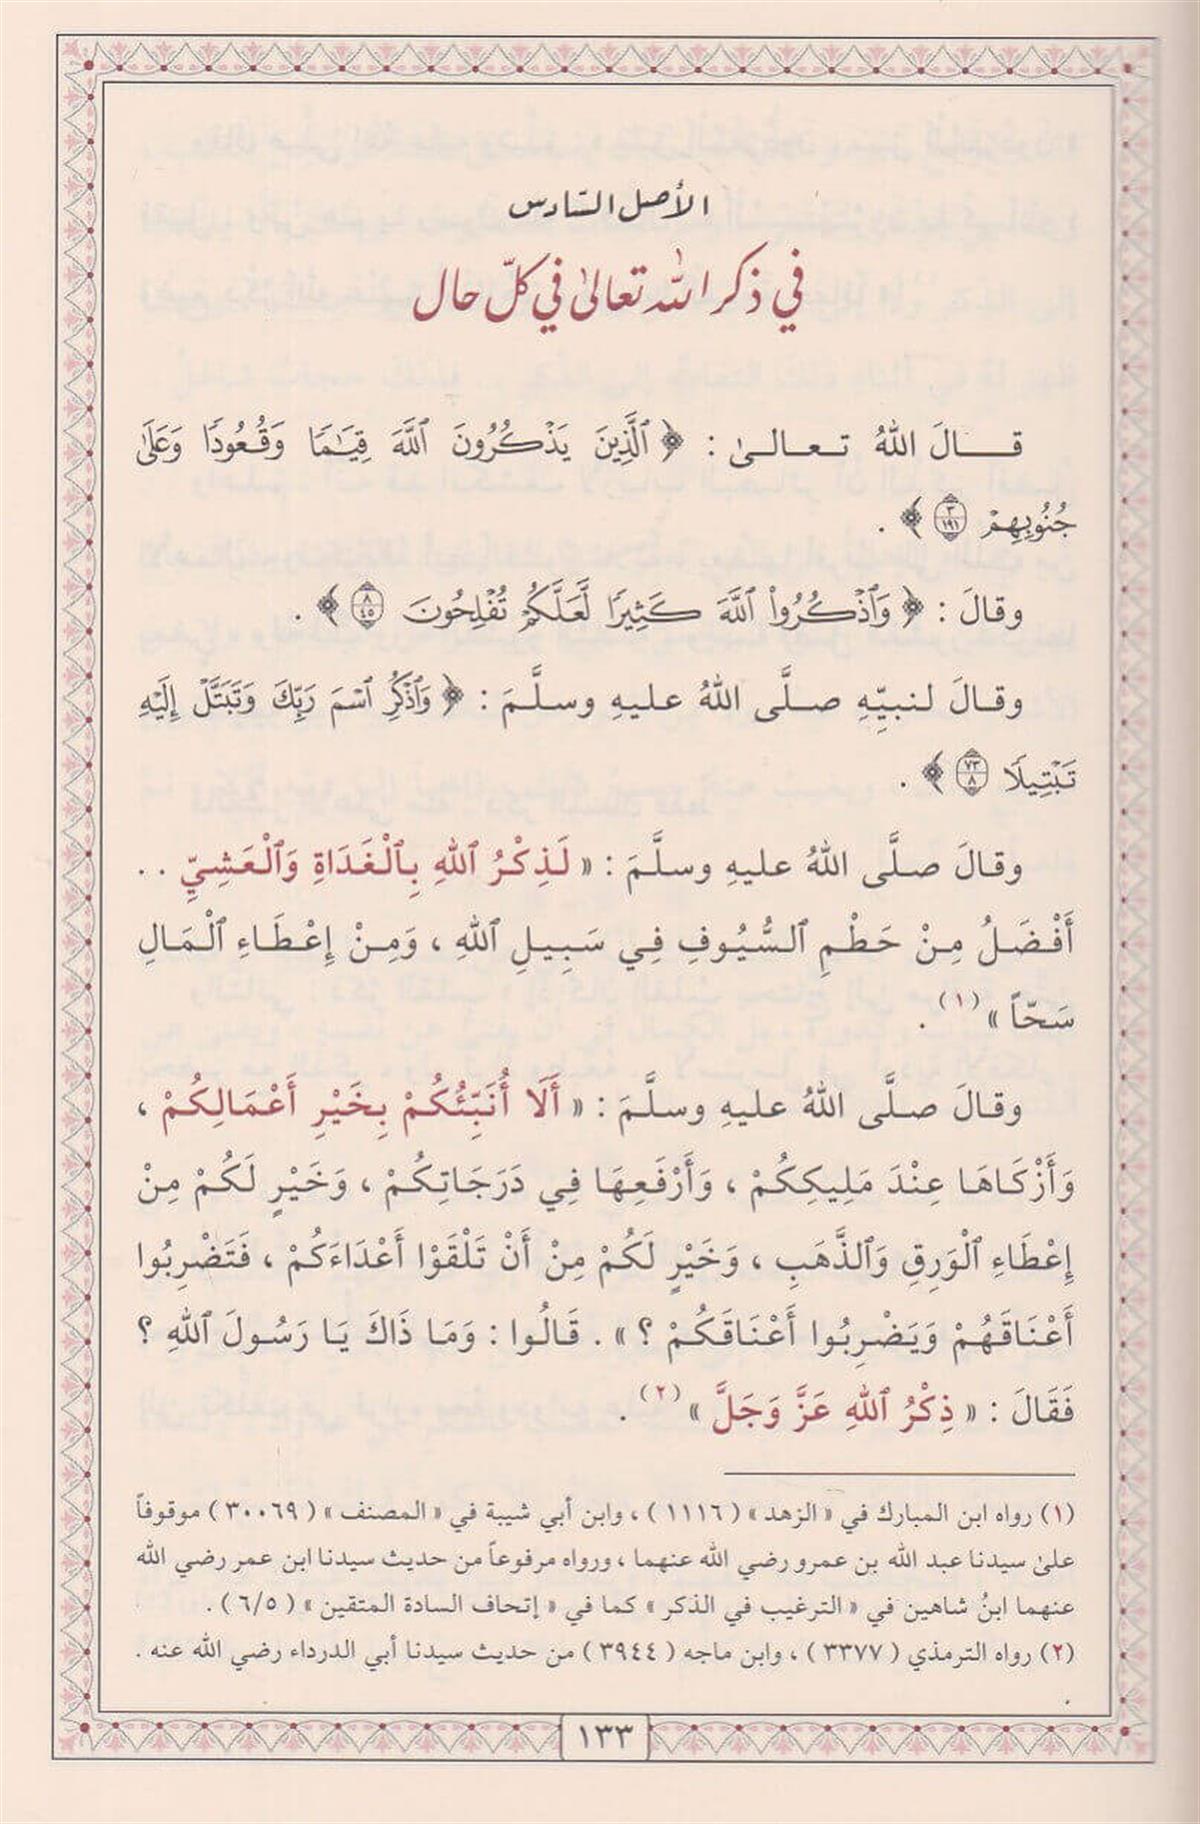 الأصل السّادس
في ذكر الله تعالىٰ في كلّ حال
قـالَ اللهُ تـعـالـىٰ : ﴿ ٱلَّذِينَ يَذْكُرُونَ ٱللَّهَ قِيَـٰمًا وَقُعُودًا وَعَلَىٰ
جُنُوبِهِمْ ٣ ١٩١ ﴾ .
وقالَ : ﴿ وَٱذْكُرُوا۟ ٱللَّهَ كَثِيرًا لَّعَلَّكُمْ تُفْلِحُونَ ٨ ٤٥ ﴾ .
وقالَ لنبيِّهِ صلَّى اللهُ عليهِ وسلَّمَ : ﴿ وَٱذْكُرِ ٱسْمَ رَبِّكَ وَتَبَتَّلْ إِلَيْهِ
تَبْتِيلًا ٧٣ ٨ ﴾ .
وقالَ صلَّى اللهُ عليهِ وسلَّمَ : « لَذِكْرُ ٱللهِ بِٱلْغَدَاةِ وَٱلْعَشِيِّ . .
أَفْضَلُ مِنْ حَطْمِ ٱلسُّيُوفِ فِي سَبِيلِ ٱللهِ ، وَمِنْ إِعْطَاءِ ٱلْمَالِ
سَحّاً »(١) .
وقالَ صلَّى اللهُ عليهِ وسلَّمَ : « أَلَا أُنَبِّئُكُمْ بِخَيْرِ أَعْمَالِكُمْ ،
وَأَزْكَاهَا عِنْدَ مَلِيكِكُمْ ، وَأَرْفَعِهَا فِي دَرَجَاتِكُمْ ، وَخَيْرٍ لَكُمْ مِنْ
إِعْطَاءِ ٱلْوَرِقِ وَٱلذَّهَبِ ، وَخَيْرٍ لَكُمْ مِنْ أَنْ تَلْقَوْا أَعْدَاءَكُمْ ، فَتَضْرِبُوا
أَعْنَاقَهُمْ وَيَضْرِبُوا أَعْنَاقَكُمْ ؟ » . قَالُوا : وَمَا ذَاكَ يَا رَسُولَ ٱللهِ ؟
فَقَالَ : « ذِكْرُ ٱللهِ عَزَّ وَجَلَّ »(٢) .
(١) رواه ابن المبارك في « الزهد » ( ١١١٦ ) ، وابن أبي شيبة في « المصنف » ( ٣٠٠٦٩ ) موقوفاً
علىٰ سيدنا عبد الله بن عمرو رضي الله عنهما ، ورواه مرفوعاً من حديث سيدنا ابن عمر رضي الله
عنهما ابنُ شاهين في « الترغيب في الذكر » كما في « إتحاف السادة المتقين » ( ٦/٥ ) .
(٢) رواه الترمذي ( ٣٣٧٧ ) ، وابن ماجه ( ٣٩٤٤ ) من حديث سيدنا أبي الدرداء رضي الله عنه .
١٣٣